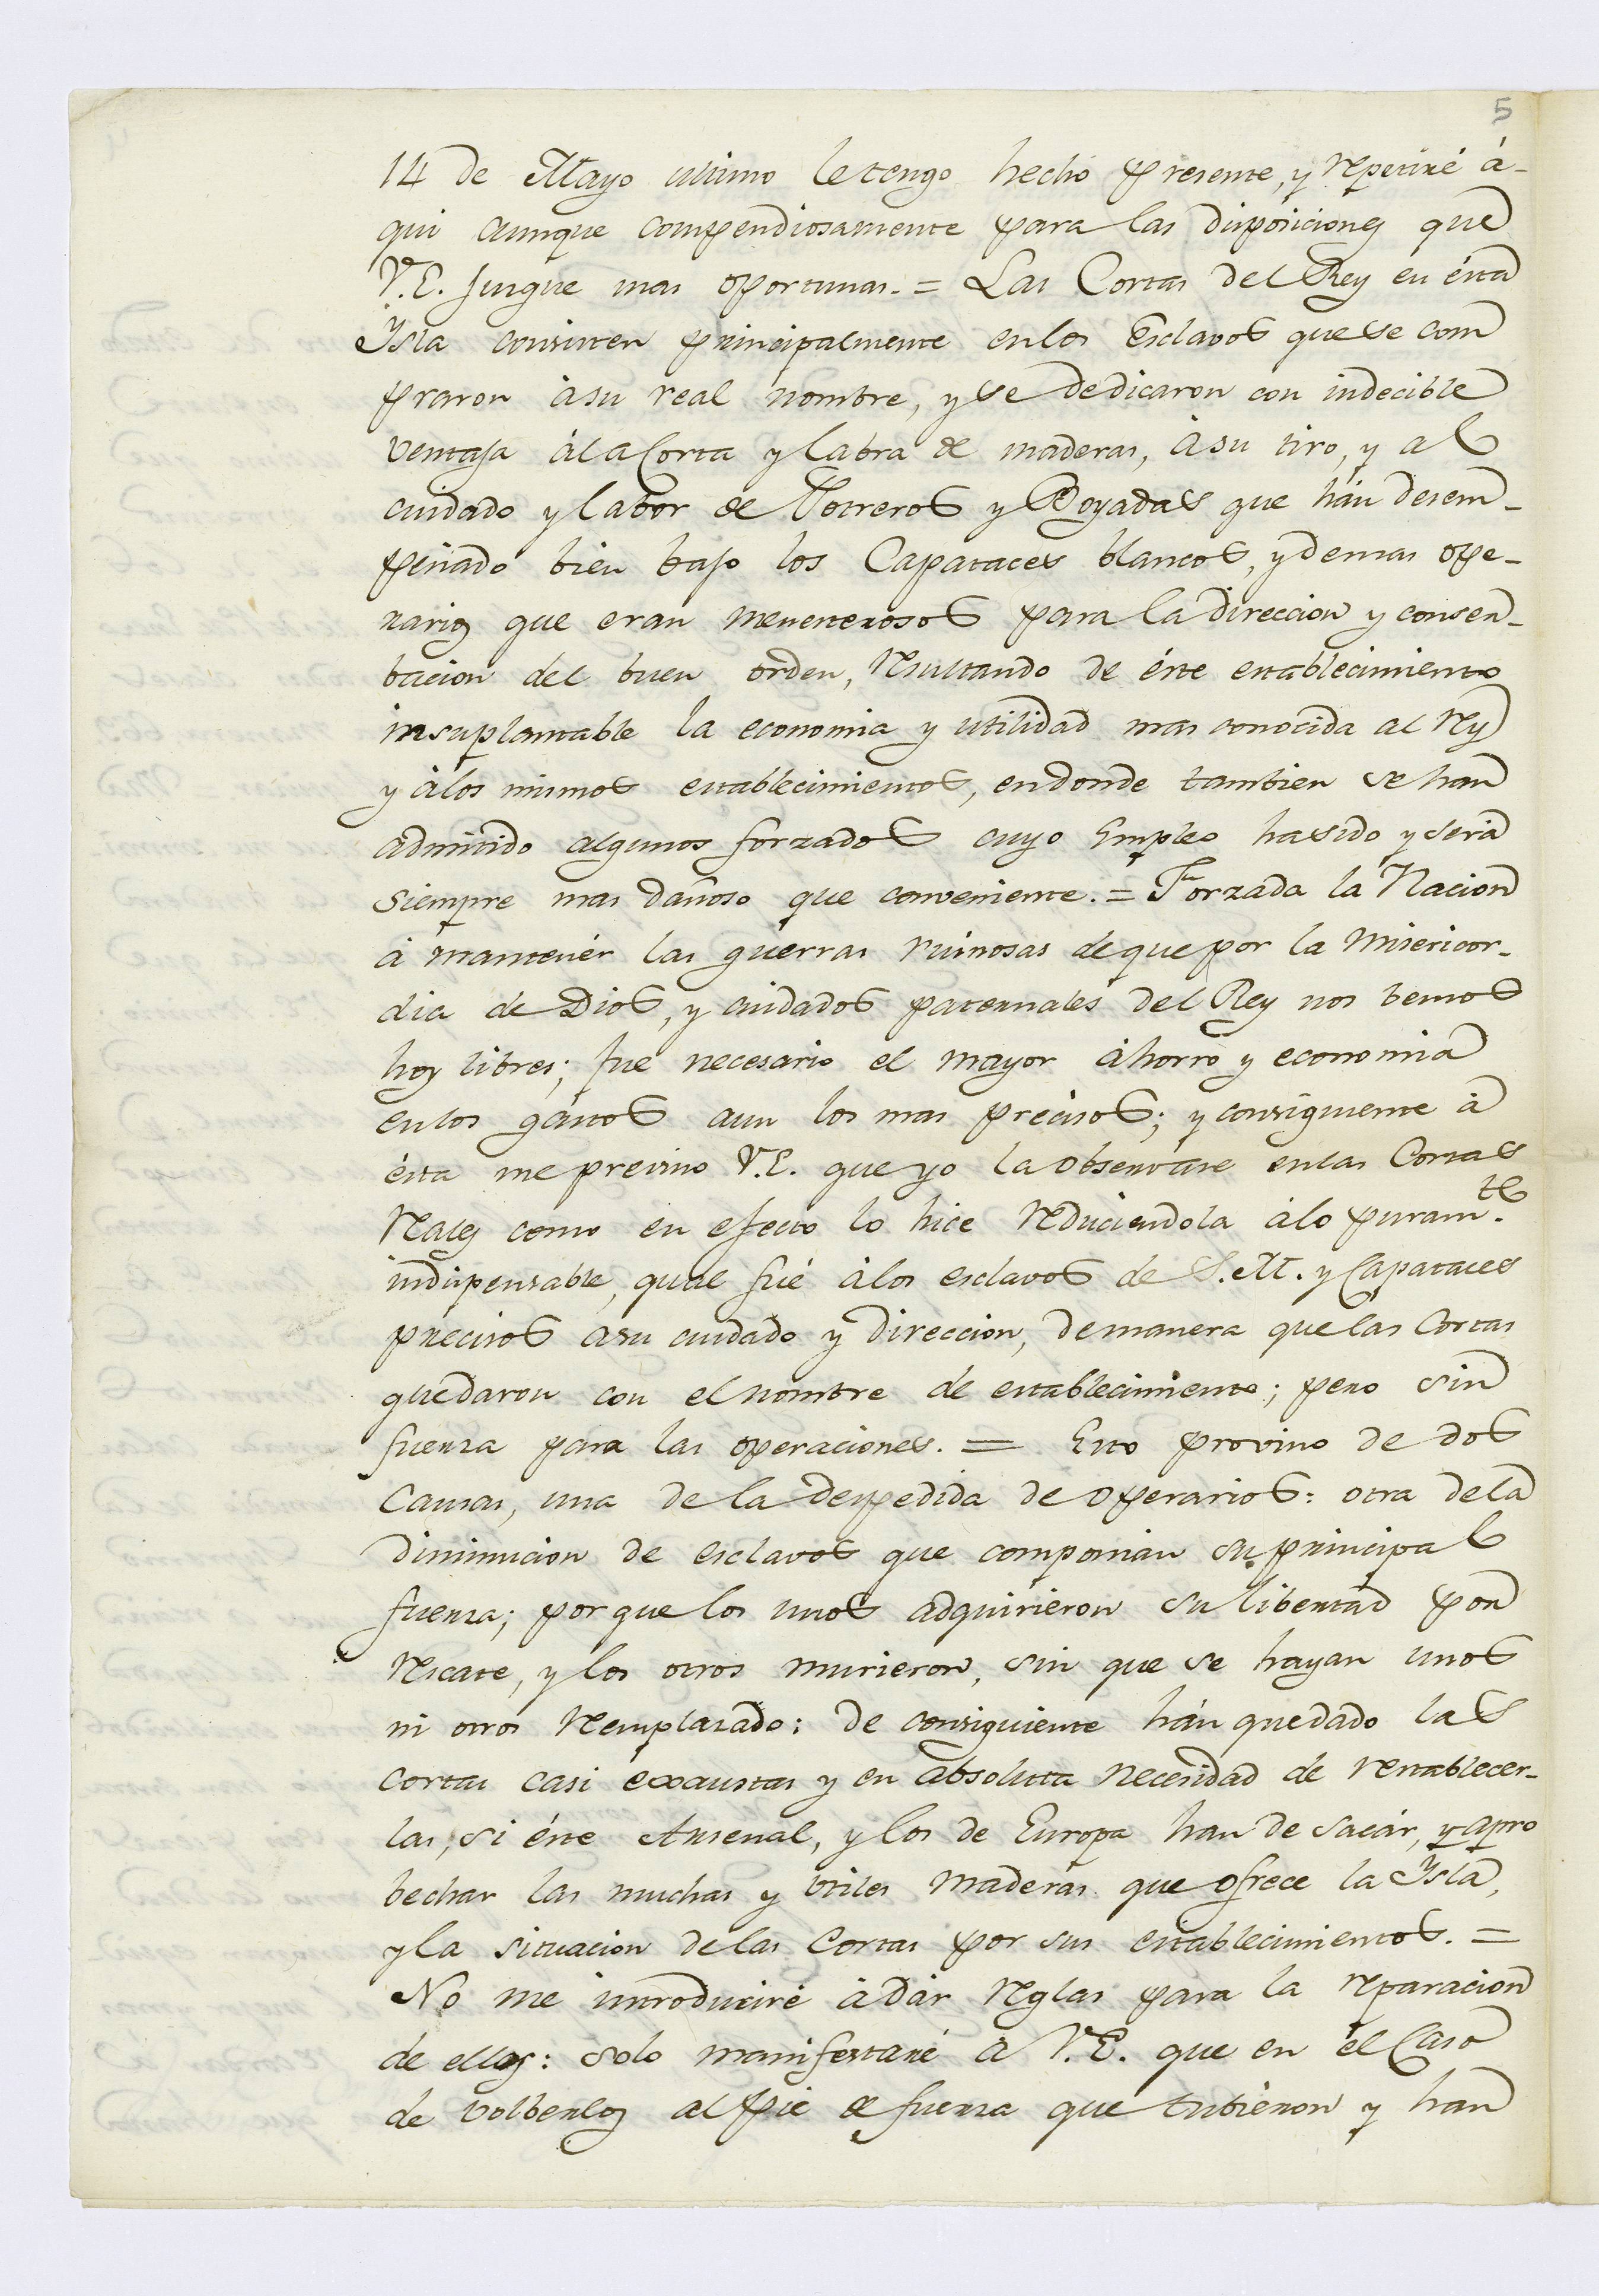 5
14 de Mayo ultimo le tengo hecho presente, y repetiré á-
qui aunque compendiosamente para las disposiciones que
V.E. jusgue mas oportunas. = Las Cortas del Rey en ésta
Ysla consisten principalmente en los Esclavos que se com
praron á su real nombre, y se dedicaron con indecible
ventaja á la Corta y labra de maderas, á su tiro, y al
cuidado y labor de Potreros y Boyadas que hán desem-
peñado bien bajo los Capataces blancos, y demas ope-
rarios que eran para la direccion y conser-
bacion del buen orden, resultando de éste establecimiento
insuplantable la economia y utilidad mas conocida al Rey
y á los mismos establecimientos, en donde tambien se han
admitido algunos forzados cuyo Empleo ha sido y será
siempre mas dañoso que conveniente. = Forzada la Nacion
á mantenér las guerras ruinosas de que por la Misericor-
dia de Dios, y cuidados paternales del Rey nos bemos
hoy libres; fue necesario el mayor ahorro y economia
en los gastos aun los mas precisos; y consiguiente á
ésta me previno V.E. que yo la observase en las Cortas
Reales como en efecto lo hice reduciendola á lo puram.te
indispensable, qual fué á los esclavos de S.M. y Capataces
precisos a su cuidado y direccion, de manera que las Cortas
quedaron con el nombre de establecimiento; pero sin
fuerza para las operaciones. = Esto provino de dos
Causas, una de la despedida de operarios: otra de la
diminucion de esclavos que componian su principal
fuerza; por que los unos adquirieron su libertad por
Rescate, y los otros murieron, sin que se hayan unos
ni otros remplasado: de consiguiente hán quedado las
cortas casi exaustas y en absoluta necesidad de restablecer-
las, si éste Arsenal, y los de Europa han de sacár, y apro
bechar las muchas y utiles maderas que ofrece la Ysla,
y la situacion de las Cortas por sus establecimientos. =
No me introduciré á dár reglas para la reparacion
de ellas: solo manifestaré á V.E. que en el Caso
de volberlas al pie de fuerza que tubieron y han